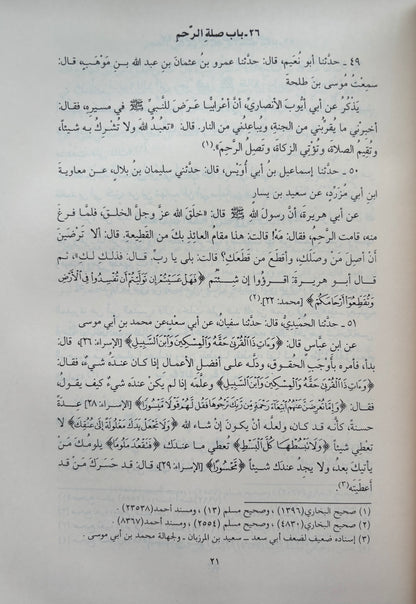 ٢٦ـ باب صلة الرّحم
٤٩ ـ حدّثنا أبو نُعَيم، قال: حدّثنا عمرو بنُ عثمانَ بنِ عبد الله بنِ مَوْهَبٍ، قال:
سمِعْتُ مُوسى بنَ طلحة
يَذكُرُ عن أبي أيُّوبَ الأنصاريِّ، أنَّ أعرابيّاً عَرَضَ للنَّبيِّ ﷺ في مسيرِه، فقال:
أخبِرني ما يُقرِّبني من الجنةِ، ويُباعدُني من النار. قال: «تعبدُ الله ولا تُشركُ به شيئاً،
وتُقيمُ الصلاةَ، وتُؤتي الزكاةَ، وتَصِلُ الرحمَ».(١)
٥٠ ـ حدّثنا إسماعيلُ بنُ أبي أُوَيْس، قال: حدّثني سليمانُ بنُ بلالٍ، عن معاوية
ابنِ أبي مُزَرِّدٍ، عن سعيد بنِ يسارٍ
عن أبي هريرةَ، أنَّ رسولَ الله ﷺ قال: «خلَقَ الله عزَّ وجلَّ الخلقَ، فلمّا فرغَ
منه، قامت الرَّحِمُ، فقال: مَهْ! قالت: هذا مقامُ العائذِ بكَ من القطيعةِ. قال: ألا تَرْضَيْنَ
أنْ أصِلَ مَنْ وصَلَكِ، وأقطَعَ مَن قطَعَكِ؟ قالت: بلى يا ربِّ. قال: فذلكِ لكِ»، ثم
قال أبو هريرة: اقرؤوا إن شِئتُم ﴿فَهَلْ عَسَيْتُمْ إِن تَوَلَّيْتُمْ أَن تُفْسِدُوا فِي الْأَرْضِ
وَتُقَطِّعُوا أَرْحَامَكُمْ﴾ [محمد: ٢٢].(٢)
٥١ ـ حدّثنا الحُمَيْديُّ، قال: حدّثنا سفيانُ، عن أبي سعْدٍ،عن محمد بنِ أبي موسى
عن ابنِ عبَّاسٍ قال: ﴿وَءَاتِ ذَا الْقُرْبَىٰ حَقَّهُ وَالْمِسْكِينَ وَابْنَ السَّبِيلِ﴾ [الإسراء: ٢٦]، قال:
بدأ، فأمره بأَوْجَبِ الحُقوق، ودلَّه على أفضلِ الأعمالِ إذا كان عندَه شيءٌ، فقال:
﴿وَءَاتِ ذَا الْقُرْبَىٰ حَقَّهُ وَالْمِسْكِينَ وَابْنَ السَّبِيلِ﴾ وعلَّمه إذا لم يكنْ عندَه شيءٌ كيف يقولُ،
فقال: ﴿وَإِمَّا تُعْرِضَنَّ عَنْهُمُ ابْتِغَاءَ رَحْمَةٍ مِّن رَّبِّكَ تَرْجُوهَا فَقُل لَّهُمْ قَوْلًا مَّيْسُورًا﴾ [الإسراء: ٢٨] عِدةً
حسنةً، كأنه قد كان، ولعلَّه أنْ يكونَ إنْ شاء الله ﴿وَلَا تَجْعَلْ يَدَكَ مَغْلُولَةً إِلَىٰ عُنُقِكَ﴾ لا
تعطي شيئاً ﴿وَلَا تَبْسُطْهَا كُلَّ الْبَسْطِ﴾ تعطي ما عندَك ﴿فَتَقْعُدَ مَلُومًا﴾ يلومُكَ مَنْ
يأتيكَ بعدُ، ولا يجِدُ عندَك شيئاً ﴿مَّحْسُورًا﴾ [الإسراء: ٢٩]، قال: قد حَسَّرَكَ مَنْ قد
أعطَيْتَه.(٣)
(١) صحيح البخاري(١٣٩٦) ، وصحيح مسلم (١٣) ، ومسند أحمد(٢٣٥٣٨) .
(٢) صحيح البخاري(٤٨٣٠) ، وصحيح مسلم (٢٥٥٤) ، ومسند أحمد(٨٣٦٧) .
(٣) إسناده ضعيف لضعف أبي سعد ــ سعيد بن المرزبان ـ ولجهالة محمد بن أبي موسى .
٢١